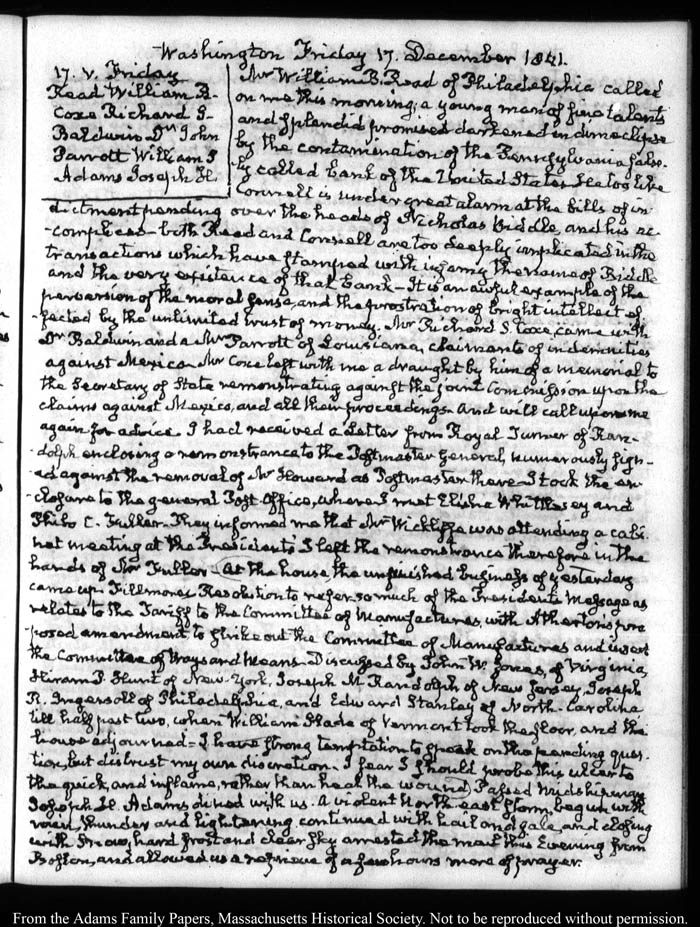 Washington Friday 17. December 1841.
17. V. Friday
Read William B-
Coxe Richard S-
Baldwin Dr. John
Parrott William S
Adams Joseph H.
Mr William B. Read of Philadelphia called
on me this morning; a young man of fine talents
and splendid promise darkened in dim eclipse
by the contamination of the Pennsylvania false-
ly called Bank of the United States. He too like
Connell is under great alarm at the bills of in-
dictment pending over the heads of Nicholas Biddle, and his ac-
-complices- both Read and Connell are too deeply implicated in the
transactions which have stamped with infamy the name of Biddle
and the very existence of that Bank- It is an awful example of the
perversion of the moral sense, and the prostration of bright intellect ef-
-fected by the unlimited trust of money. Mr Richard S. Coxe, came with
Dr Baldwin and a Mr Parrott of Louisiana, claimants of indemnities
against Mexico- Mr Coxe left with me a draught by him of a memorial to
the Secretary of State remonstrating against the joint Commission upon the
claims against Mexico, and all their proceedings- and will call upon me
again for advice. I had received a Letter from Royal Turner of Ran-
-dolph enclosing a remonstrance to the Postmaster General, numerously sign-
-ed against the removal of Mr Howard as Postmaster there- I took the en-
-closure to the general Post-Office, where I met Elisha Whittlesey and
Philo C. Fuller. They informed me that Mr Wickliffe was attending a cabi-
net meeting at the President's. I left the remonstrance therefore in the
hands of Mr Fuller- At the house the unfinished business of yesterday
came up. Fillmore's Resolution to refer so much of the President's Message as
relates to the Tariff to the Committee of Manufactures, with Atherton's pro-
-posed amendment to strike out the Committee of Manufactures and insert
the Committee of Ways and Means- Discussed by John W. Jones, of Virginia,
Hiram P. Hunt of New-York, Joseph F. Randolph of New Jersey, Joseph
R. Ingersoll of Philadelphia, and Edward Stanley of North-Carolina
till half past two, when William Slade of Vermont took the floor, and the
house adjourned- I have strong temptation to speak on the pending ques-
-tion, but distrust my own discretion. I fear I should probe this ulcer to
the quick, and inflame, rather than heal the wound. Passed Midshipman
Joseph H. Adams dined with us. A violent North-east storm, begun with
rain, thunder and lightening, continued with hail and gale, and closing
with snow, hard frost and clear sky arrested the mail this Evening from
Boston, and allowed us a reprieve of a few hours more of prayer.
From the Adams Family Papers, Massachusetts Historical Society. Not to be reproduced without permission.